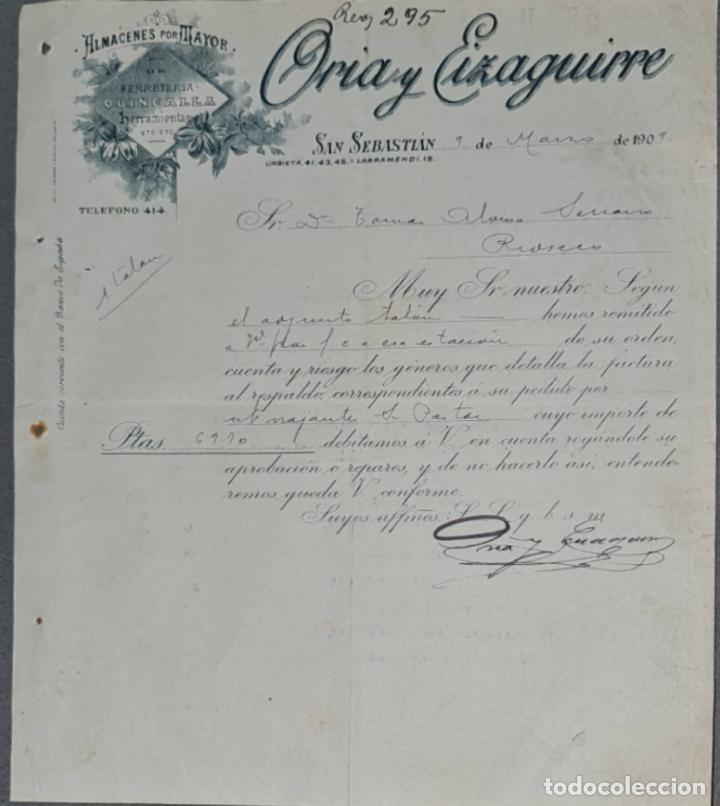 Reg 295
ALMACENES POR MAYOR
DE
FERRETERIA
QUINCALLA
herramientas
ETC. ETC.
TELEFONO 414
Oria y Eizaguirre
SAN SEBASTIÁN 9 de Marzo de 1909.
URBIETA, 41, 43, 45.- LARRAMENDI 15.
Sr. Dn Tomas Alonso Serrano
Rioseco
1 talon
Cuenta corriente con el Banco de España
Muy Sr. nuestro: Según
el adjunto talón hemos remitido
a Vd por f.c a esa estación de su orden,
cuenta y riesgo los géneros que detalla la factura
al respaldo, correspondientes á su pedido por
n/ viajante Sr Pastor cuyo importe de
Ptas. 69.70 debitamos á V. en cuenta rogándole su
aprobación ó reparos, y de no hacerlo así, entende-
remos queda V. conforme.
Suyos affmos: S. S. q b s m
Oria y Eizaguirre
todocoleccion
todocoleccion.net